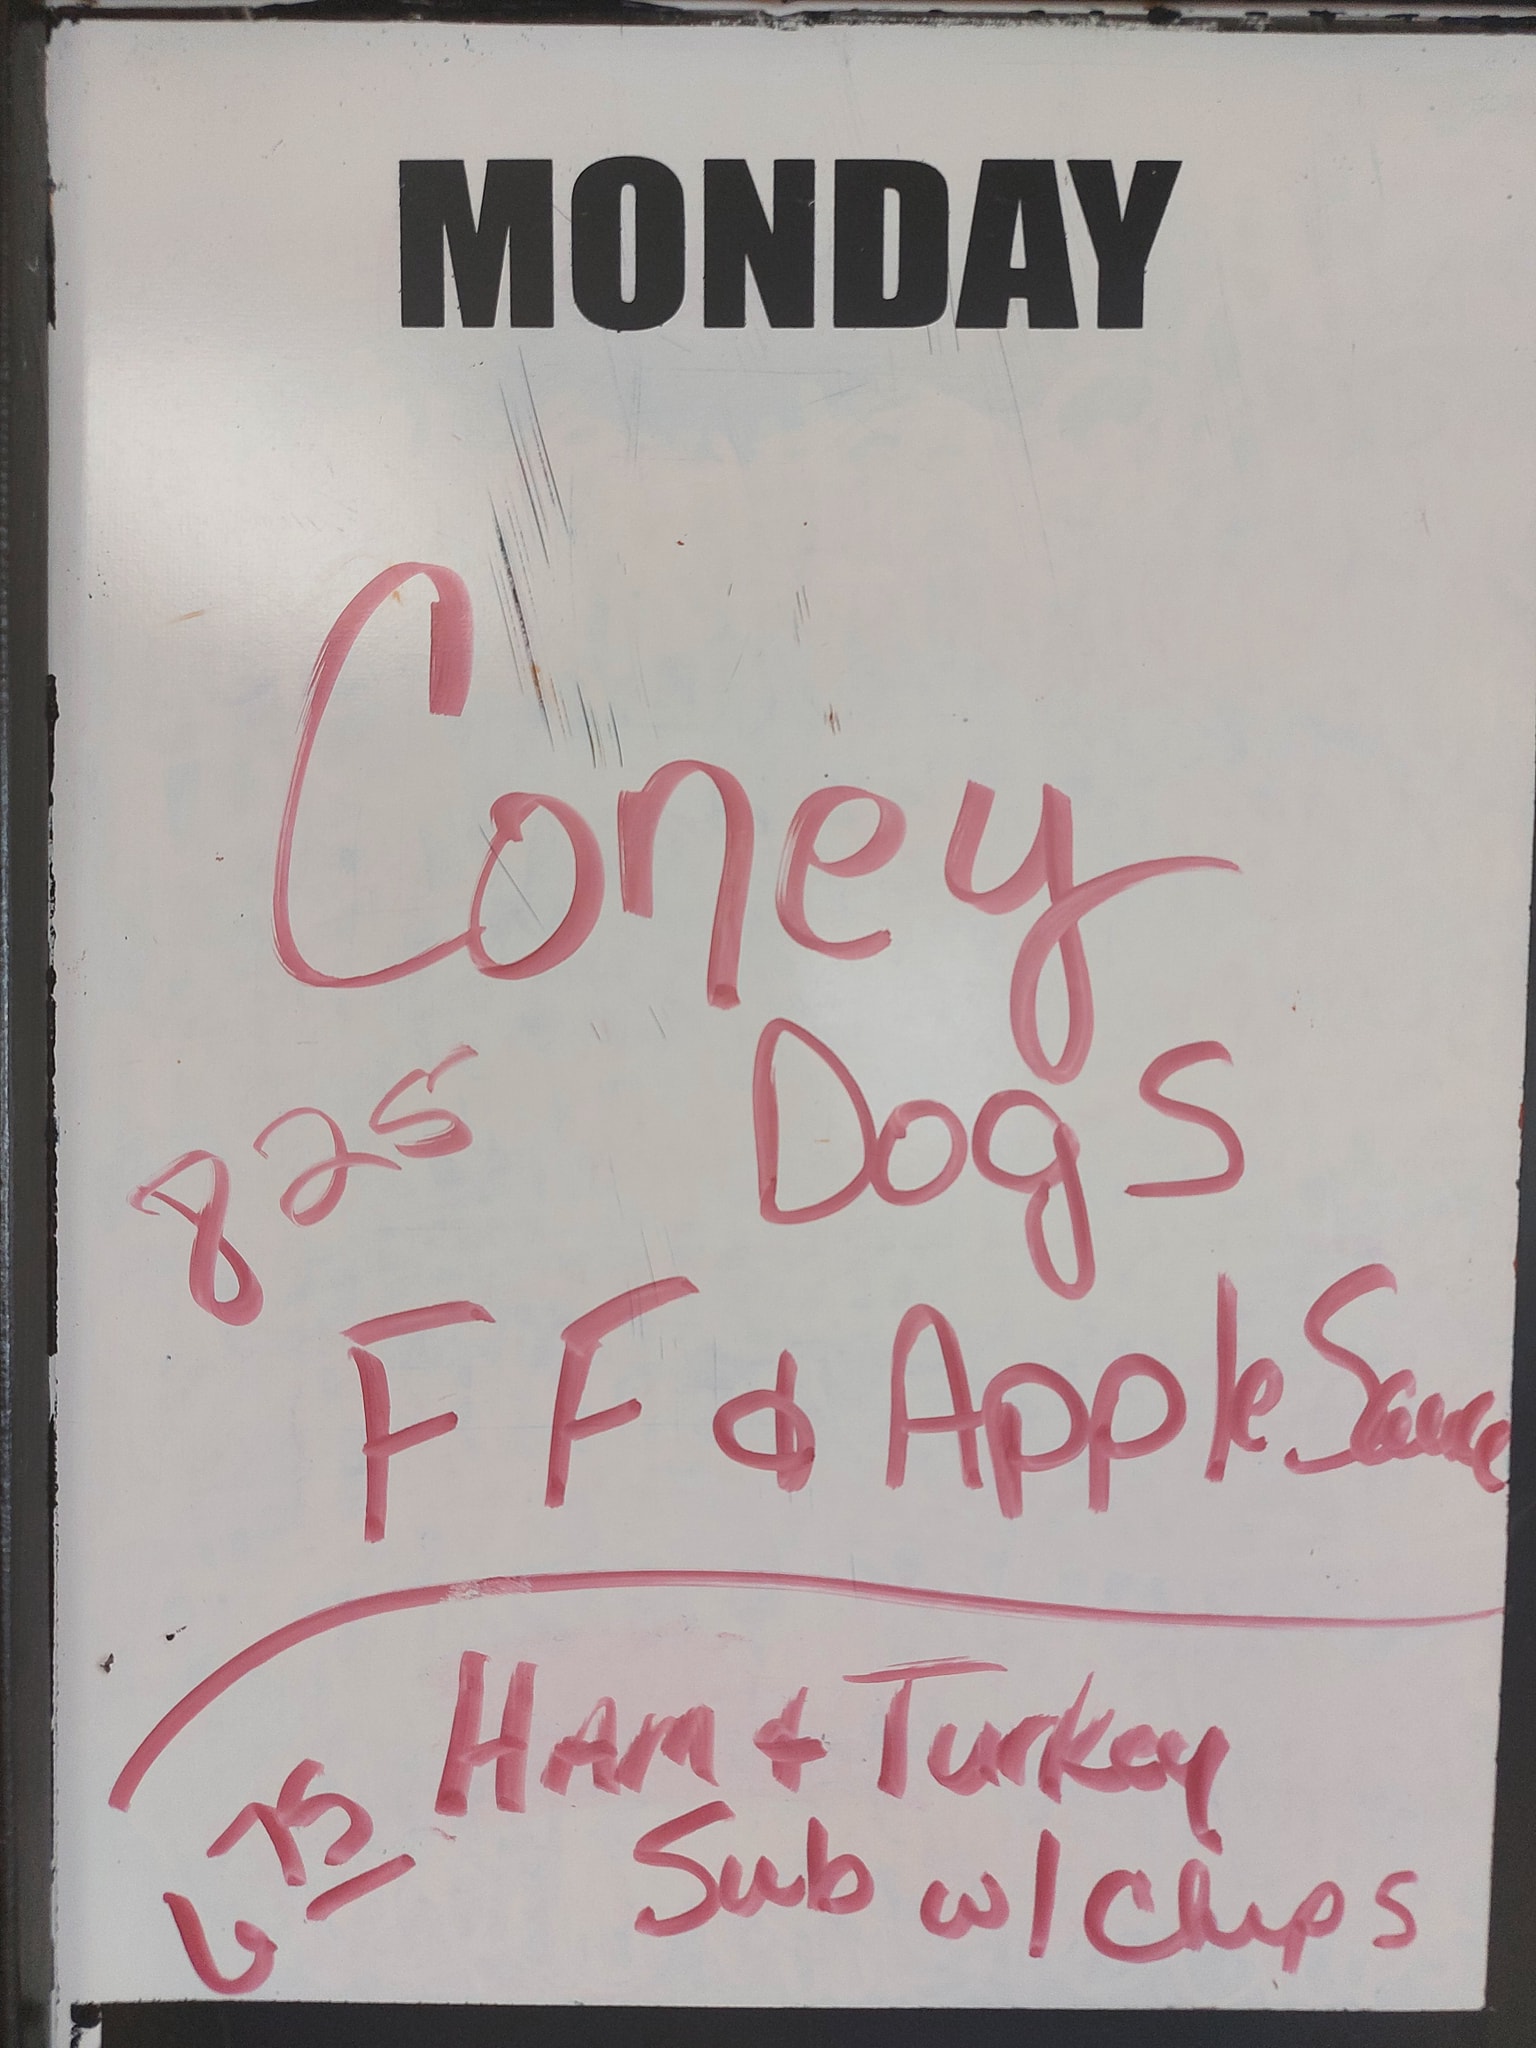 MONDAY
Coney
825 Dogs
FF & Apple Sauce
Ham & Turkey
675 Sub w/ Chips